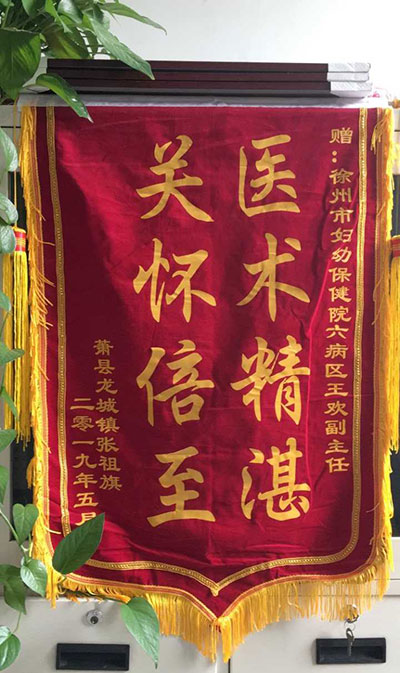 赠：徐州市妇幼保健院六病区王欢副主任
医术精湛
关怀倍至
萧县龙城镇张祖旗
二零一九年五月